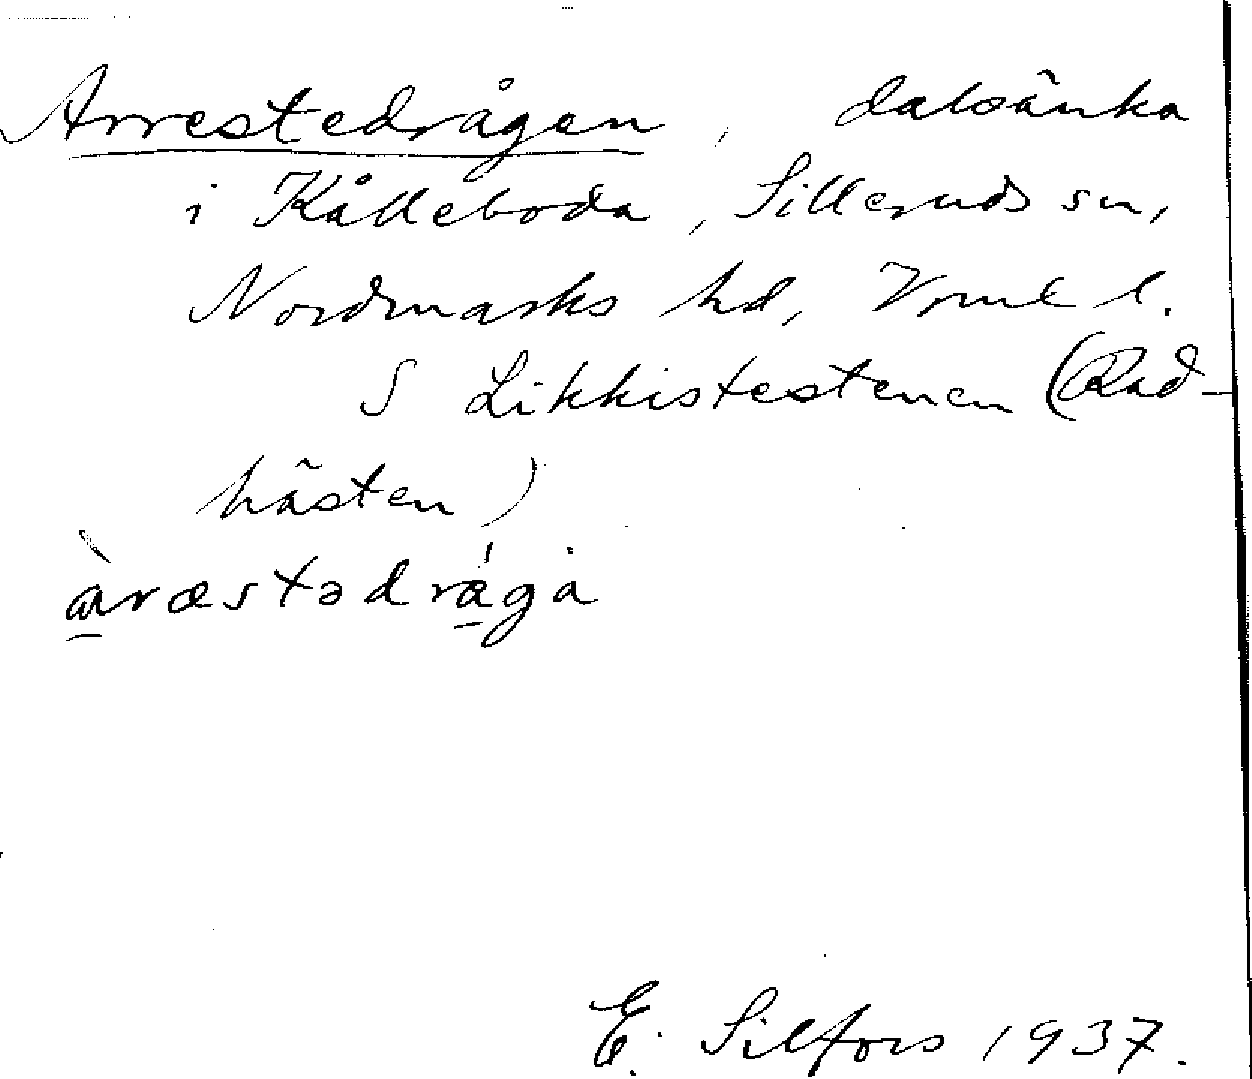 Arrestedrågen, dalsänka
i Kålleboda, Silleruds sn,
Nordmarks hd, Vrml l.
S Likkistestenen (Rad-
hästen)
àræstədrågå
E. Silfors 1937.